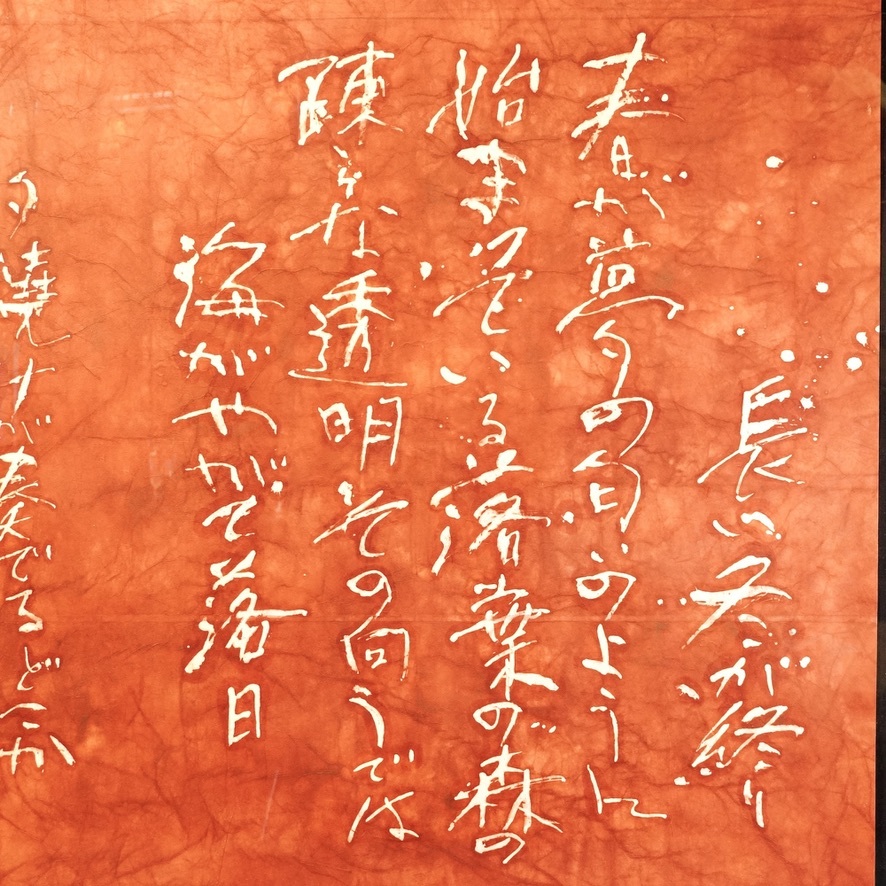 長い冬が終り
春が夢の匂いのように
始まっている落葉の森の
疎らな透明その向うでは
海がやがて落日
を焼すが奏でるどこか